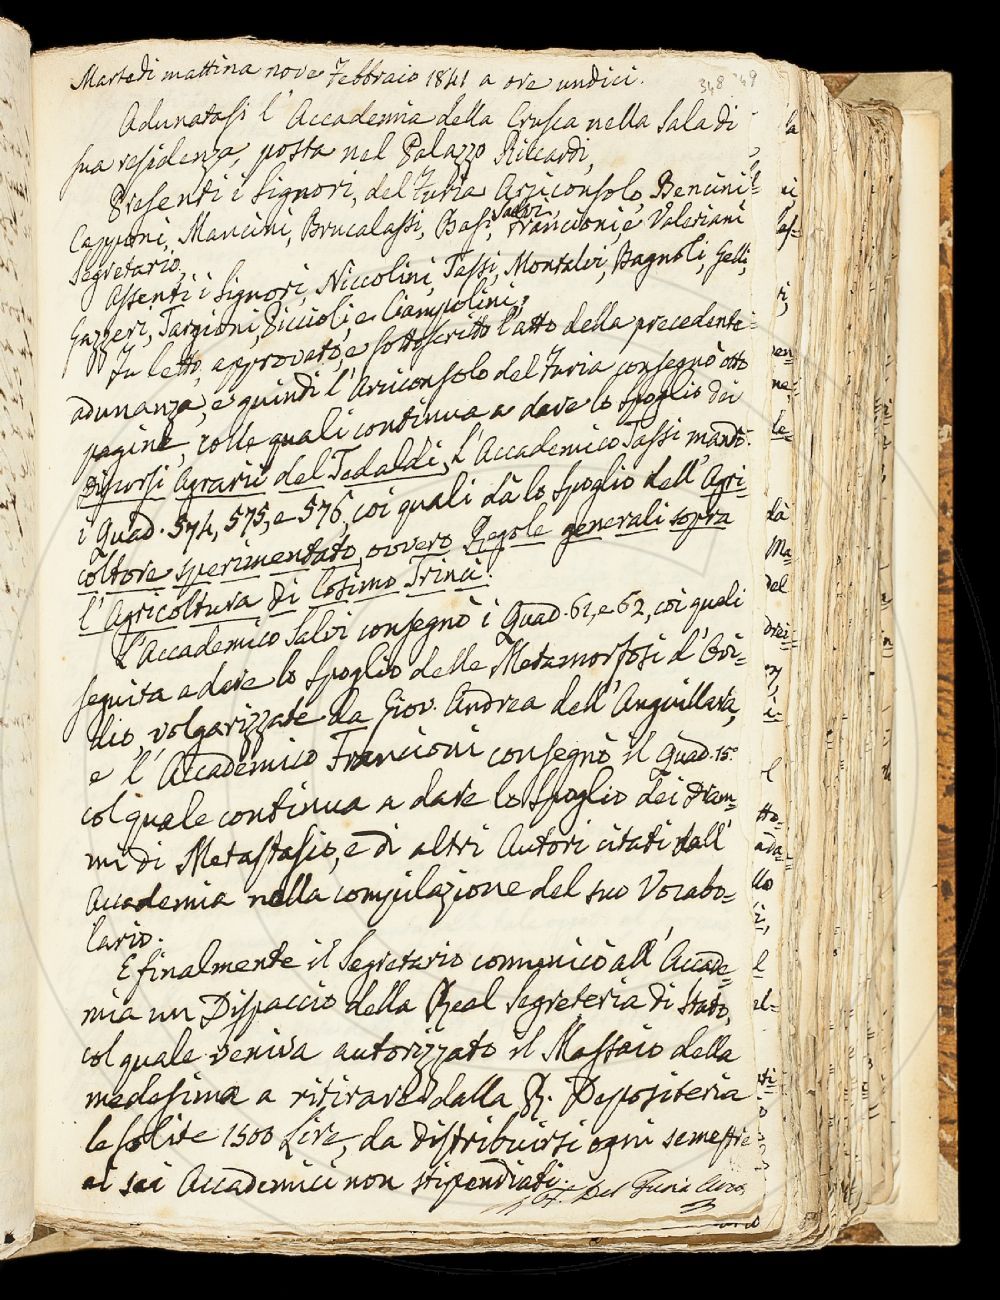 Martedì mattina nove Febbraio 1841 a ore undici.
348 349
Adunatasi l'Accademia della Crusca nella Sala di
sua residenza, posta nel Palazzo Riccardi,
Presenti i Signori, del Furia Arciconsolo, Bencini
Capponi, Mancini, Brucalassi, Basi, Salvi, Francioni, e Valeriani
Segretario,
Assenti i Signori, Niccolini, Tassi, Montalvi, Bagnoli, Gelli,
Gazzeri, Targioni, Piccioli, e Ciampolini;
Fu letto, approvato, e sottoscritto l'atto della precedente
adunanza, e quindi l'Arciconsolo del Furia consegnò otto
pagine, colle quali continua a dare lo Spoglio dei
Discorsi Agrarii del Tedaldi, l'Accademico Tassi mandò
i Quad. 574, 575, e 576, coi quali dà lo Spoglio dell'Agri=
coltore sperimentato, ovvero Regole generali sopra
l'Agricoltura di Cosimo Trinci.
L'Accademico Salvi consegnò i Quad. 61, e 62, coi quali
seguita a dare lo Spoglio delle Metamorfosi d'Ovi=
dio, volgarizzate da Giov. Andrea dell'Anguillara,
e l'Accademico Francioni consegnò il Quad. 15.°
col quale continua a dare lo Spoglio dei Dram=
mi di Metastasio, e di altri Autori citati dall'
Accademia nella compilazione del suo Vocabo=
lario.
E finalmente il Segretario comunicò all'Accade=
mia un Dispaccio della Real Segreteria di Stato,
col quale veniva autorizzato il Massaio della
medesima a ritirare dalla R. Depositeria
le solite 1500 Lire, da distribuirsi ogni semestre
ai sei Accademici non stipendiati.
Del Furia Arco